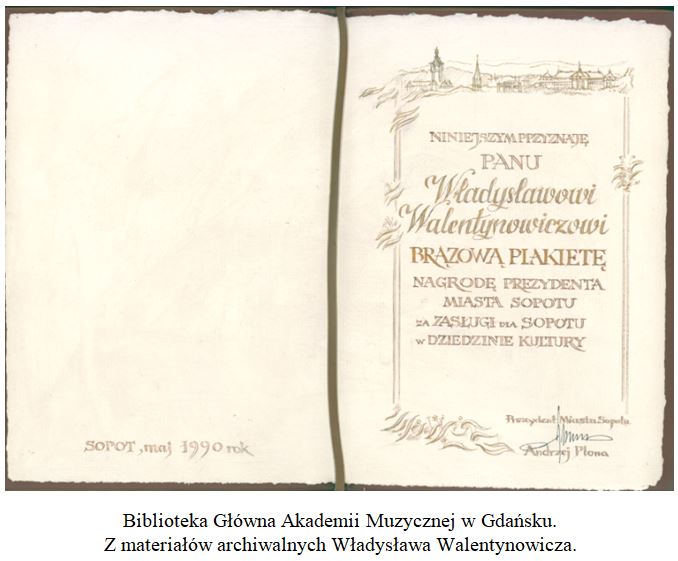 SOPOT, maj 1990 rok
NINIEJSZYM PRZYZNAJĘ
PANU
Władysławowi
Walentynowiczowi
BRĄZOWĄ PLAKIETĘ
NAGRODĘ PREZYDENTA
MIASTA SOPOTU
ZA ZASŁUGI DLA SOPOTU
W DZIEDZINIE KULTURY
Prezydent Miasta Sopotu
Andrzej Plona
Biblioteka Główna Akademii Muzycznej w Gdańsku.
Z materiałów archiwalnych Władysława Walentynowicza.